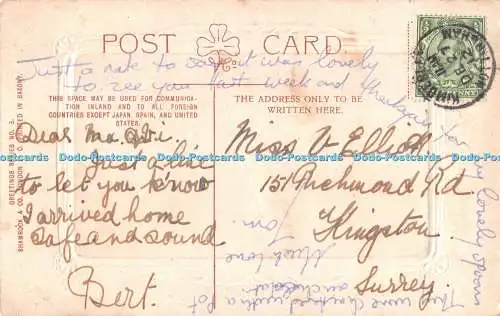 POST CARD.
Just a note to say it was lovely
to see you last week and
for
lovely
THIS SPACE MAY BE USED FOR COMMUNICA-
TION INLAND AND TO ALL FOREIGN
COUNTRIES EXCEPT JAPAN, SPAIN, AND UNITED
STATES.
THE ADDRESS ONLY TO BE
WRITTEN HERE.
GREETINGS SERIES NO. 3.
SHAMROCK & CO. LONDON E.C. PRINTED IN SAXONY.
Dear
Just a line
to let you know
I arrived home
Safe and sound
Bert.
Miss V Elliott
151 Richmond Rd.
Kingston
Surrey.
Much love
with a
Dodo-Postcards Dodo-Postcards Dodo-Postcards Dodo-Postcards Dodo-Postcards